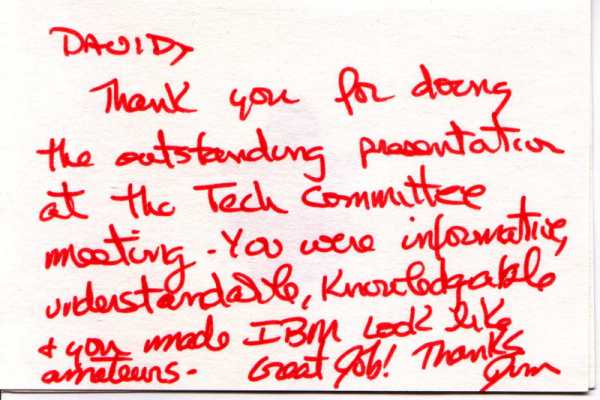 DAVID,
Thank you for doing
the outstanding presentation
at the Tech Committee
meeting. You were informative,
understandable, Knowledgeable
& you made IBM Look like
amateurs. Great Job! Thanks
Jim